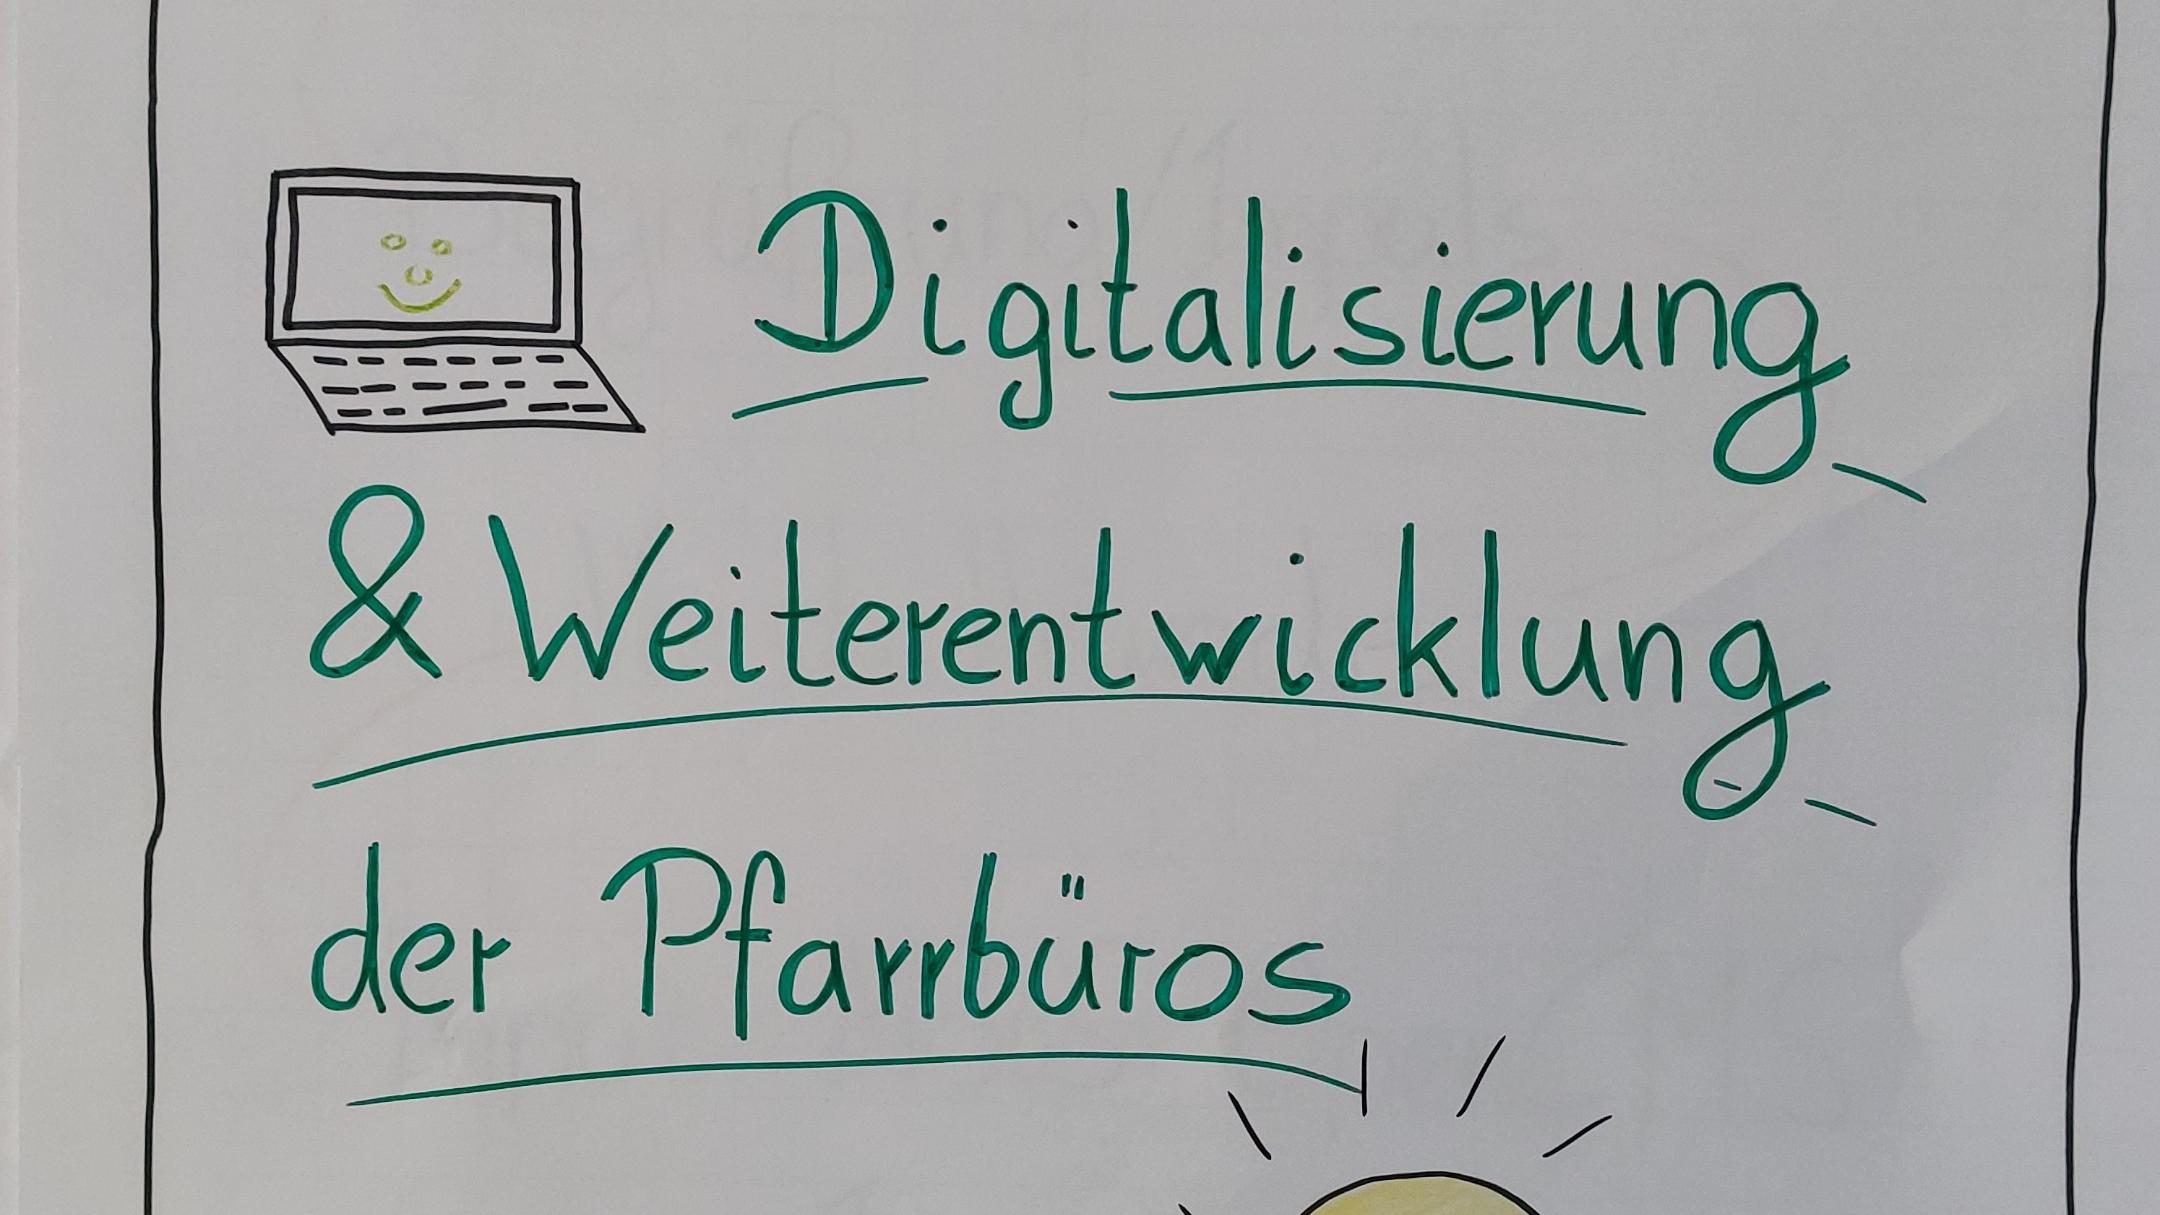 Digitalisierung
& Weiterentwicklung
der Pfarrbüros